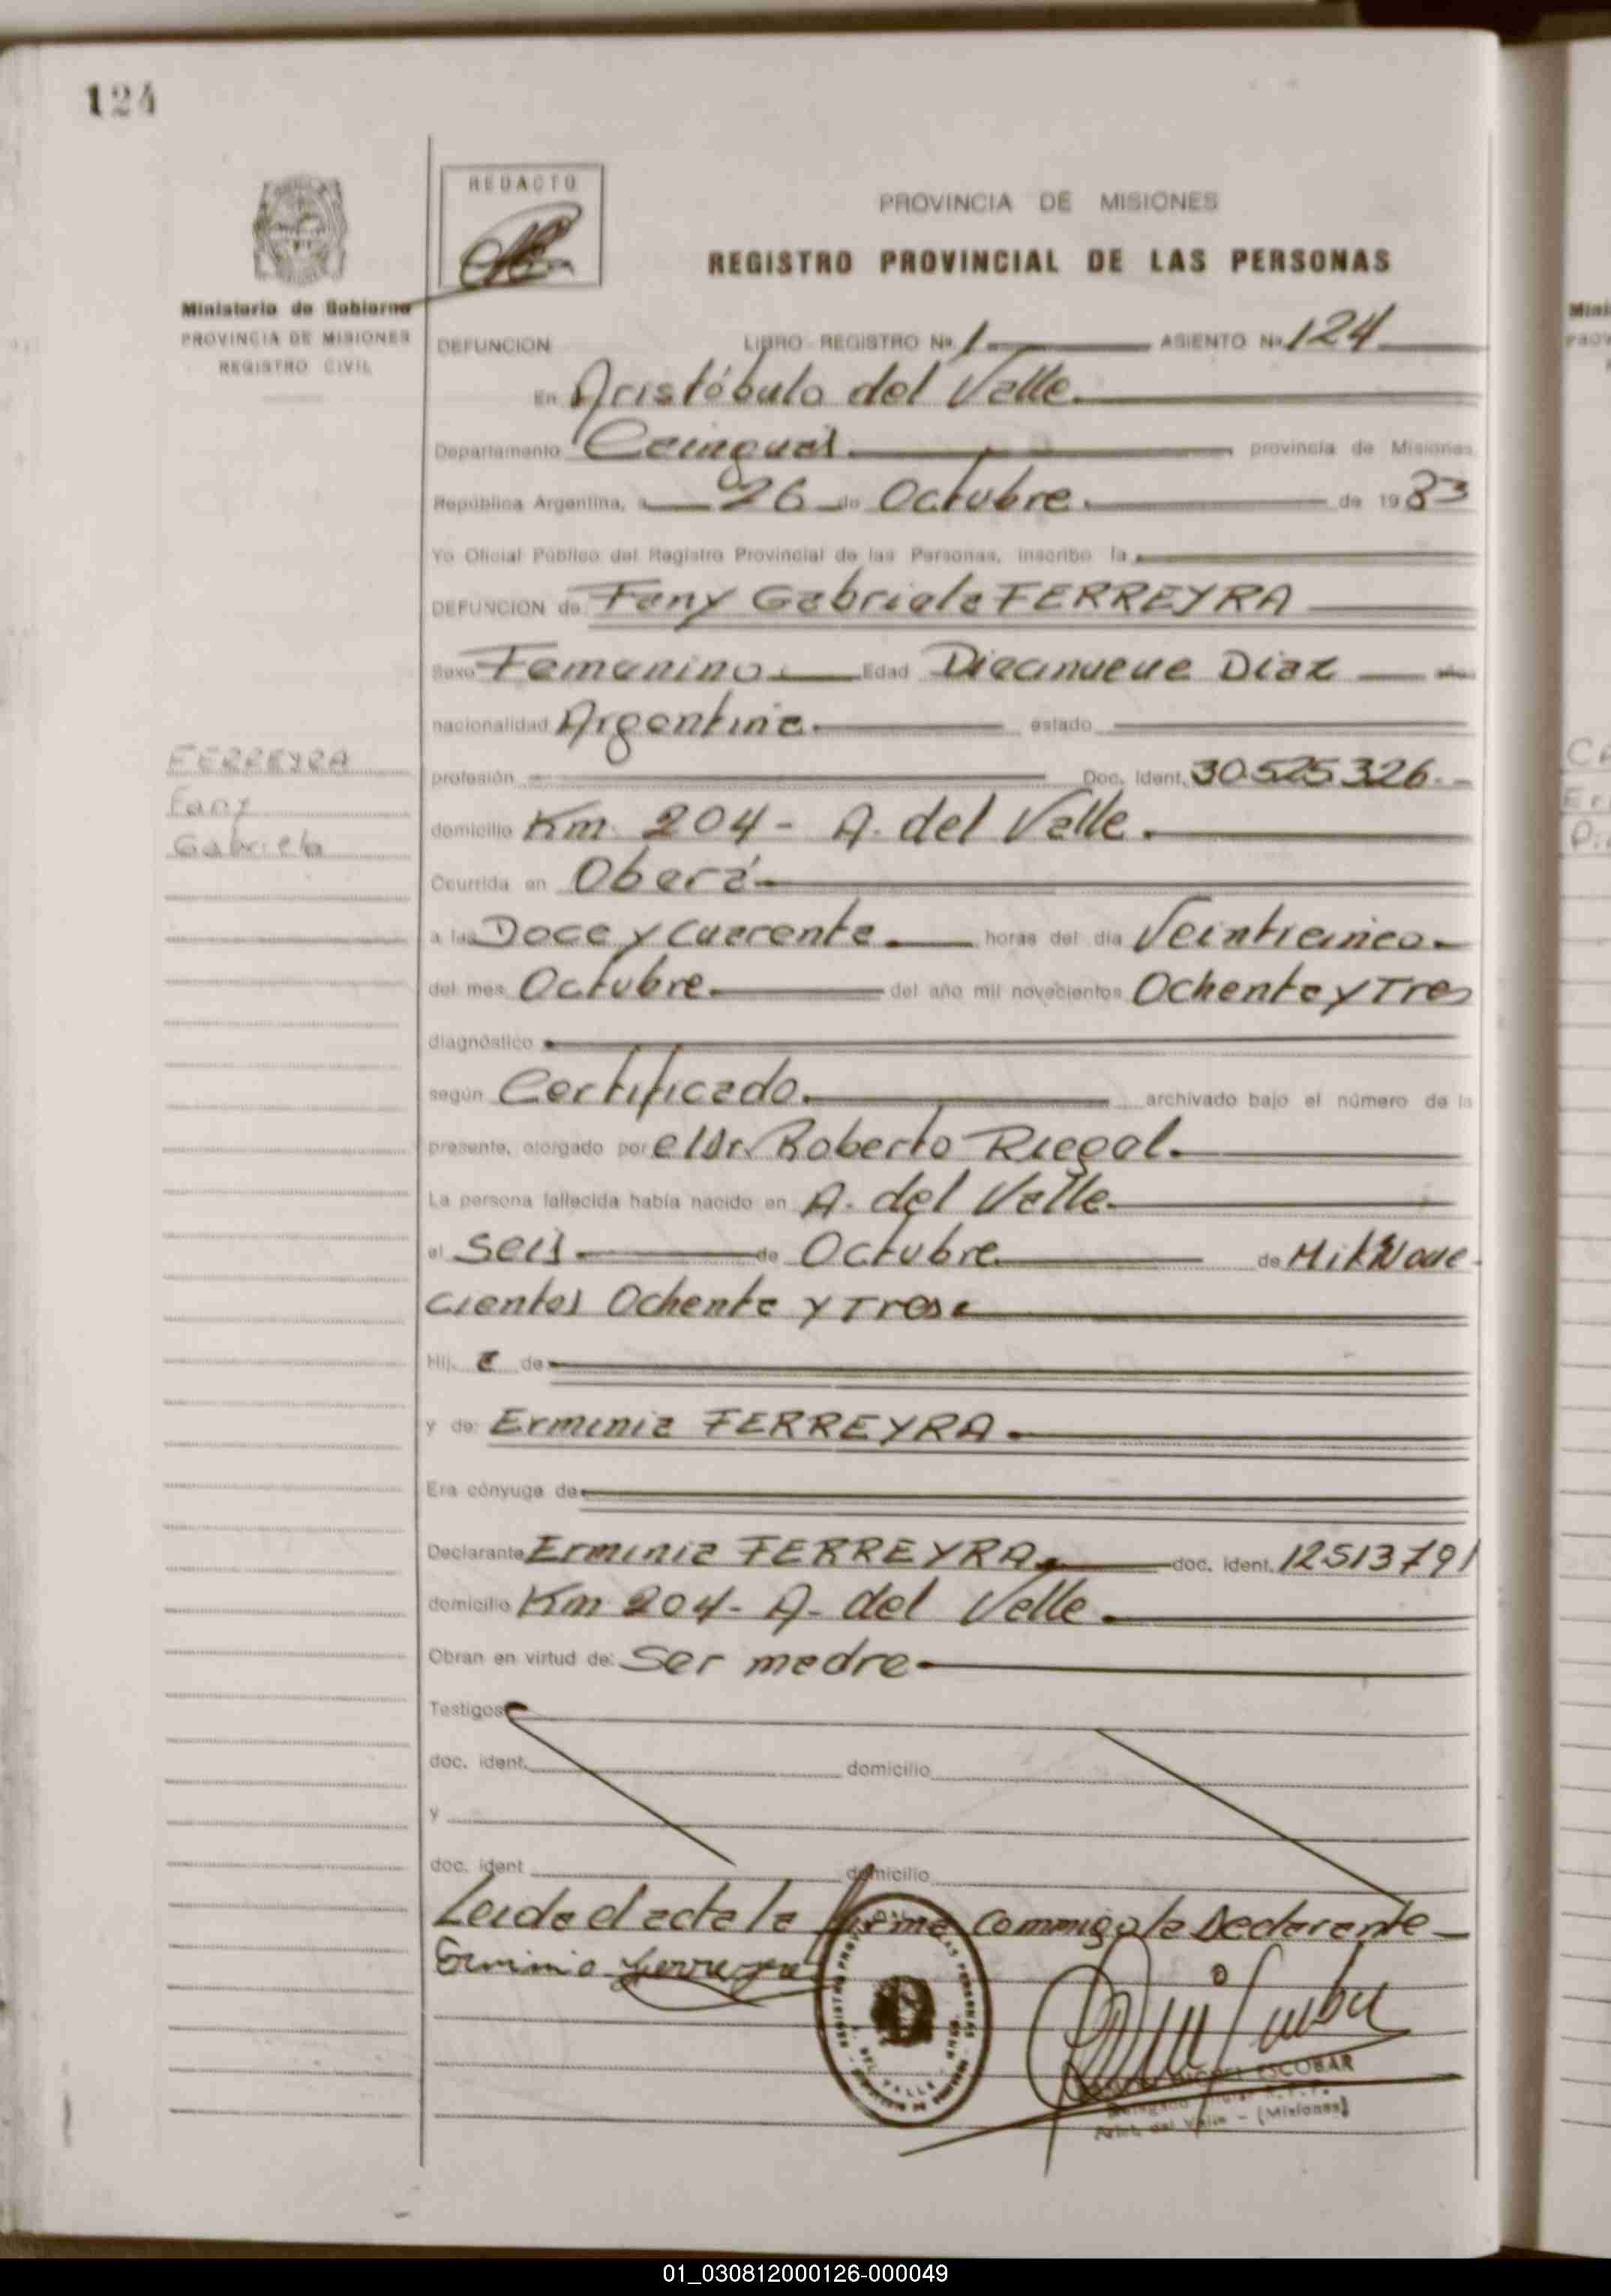 124
REDACTO
PROVINCIA DE MISIONES
REGISTRO PROVINCIAL DE LAS PERSONAS
Ministerio de Gobierno
PROVINCIA DE MISIONES
REGISTRO CIVIL
DEFUNCION LIBRO REGISTRO No. 1 ASIENTO No. 124
En Aristóbulo del Valle.
Departamento Cainguás provincia de Misiones,
República Argentina, a 26 de Octubre. de 1983
Yo Oficial Público del Registro Provincial de las Personas, inscribo la
DEFUNCION de Fany Gabriela FERREYRA
Sexo Femenino. Edad Diecinueve Diaz
nacionalidad Argentina. estado
FERREYRA
Fany
Gabriela
profesión Doc. Ident. 30.525.326.-
domicilio Km 204 - A. del Valle.
Ocurrida en Oberá
a las Doce y Cuarenta. horas del día Veinticinco.
del mes Octubre. del año mil novecientos Ochenta y Tres
diagnóstico
según Certificado. archivado bajo el número de la
presente, otorgado por el Dr. Roberto Riegel.
La persona fallecida había nacido en A. del Valle.
el Seis. de Octubre de Mil Nove-
cientos Ochenta y Tres.
Hij a de
y de: Erminia FERREYRA.
Era cónyuge de
Declarante Erminia FERREYRA. doc. ident. 12513791
domicilio Km 204 - A. del Valle.
Obran en virtud de: Ser madre
Testigos
doc. ident. domicilio
y
doc. ident domicilio
Leida el acta la firma conmigo la Declarante
Erminia Ferreyra
ESCOBAR
(Misiones)
01_030812000126-000049